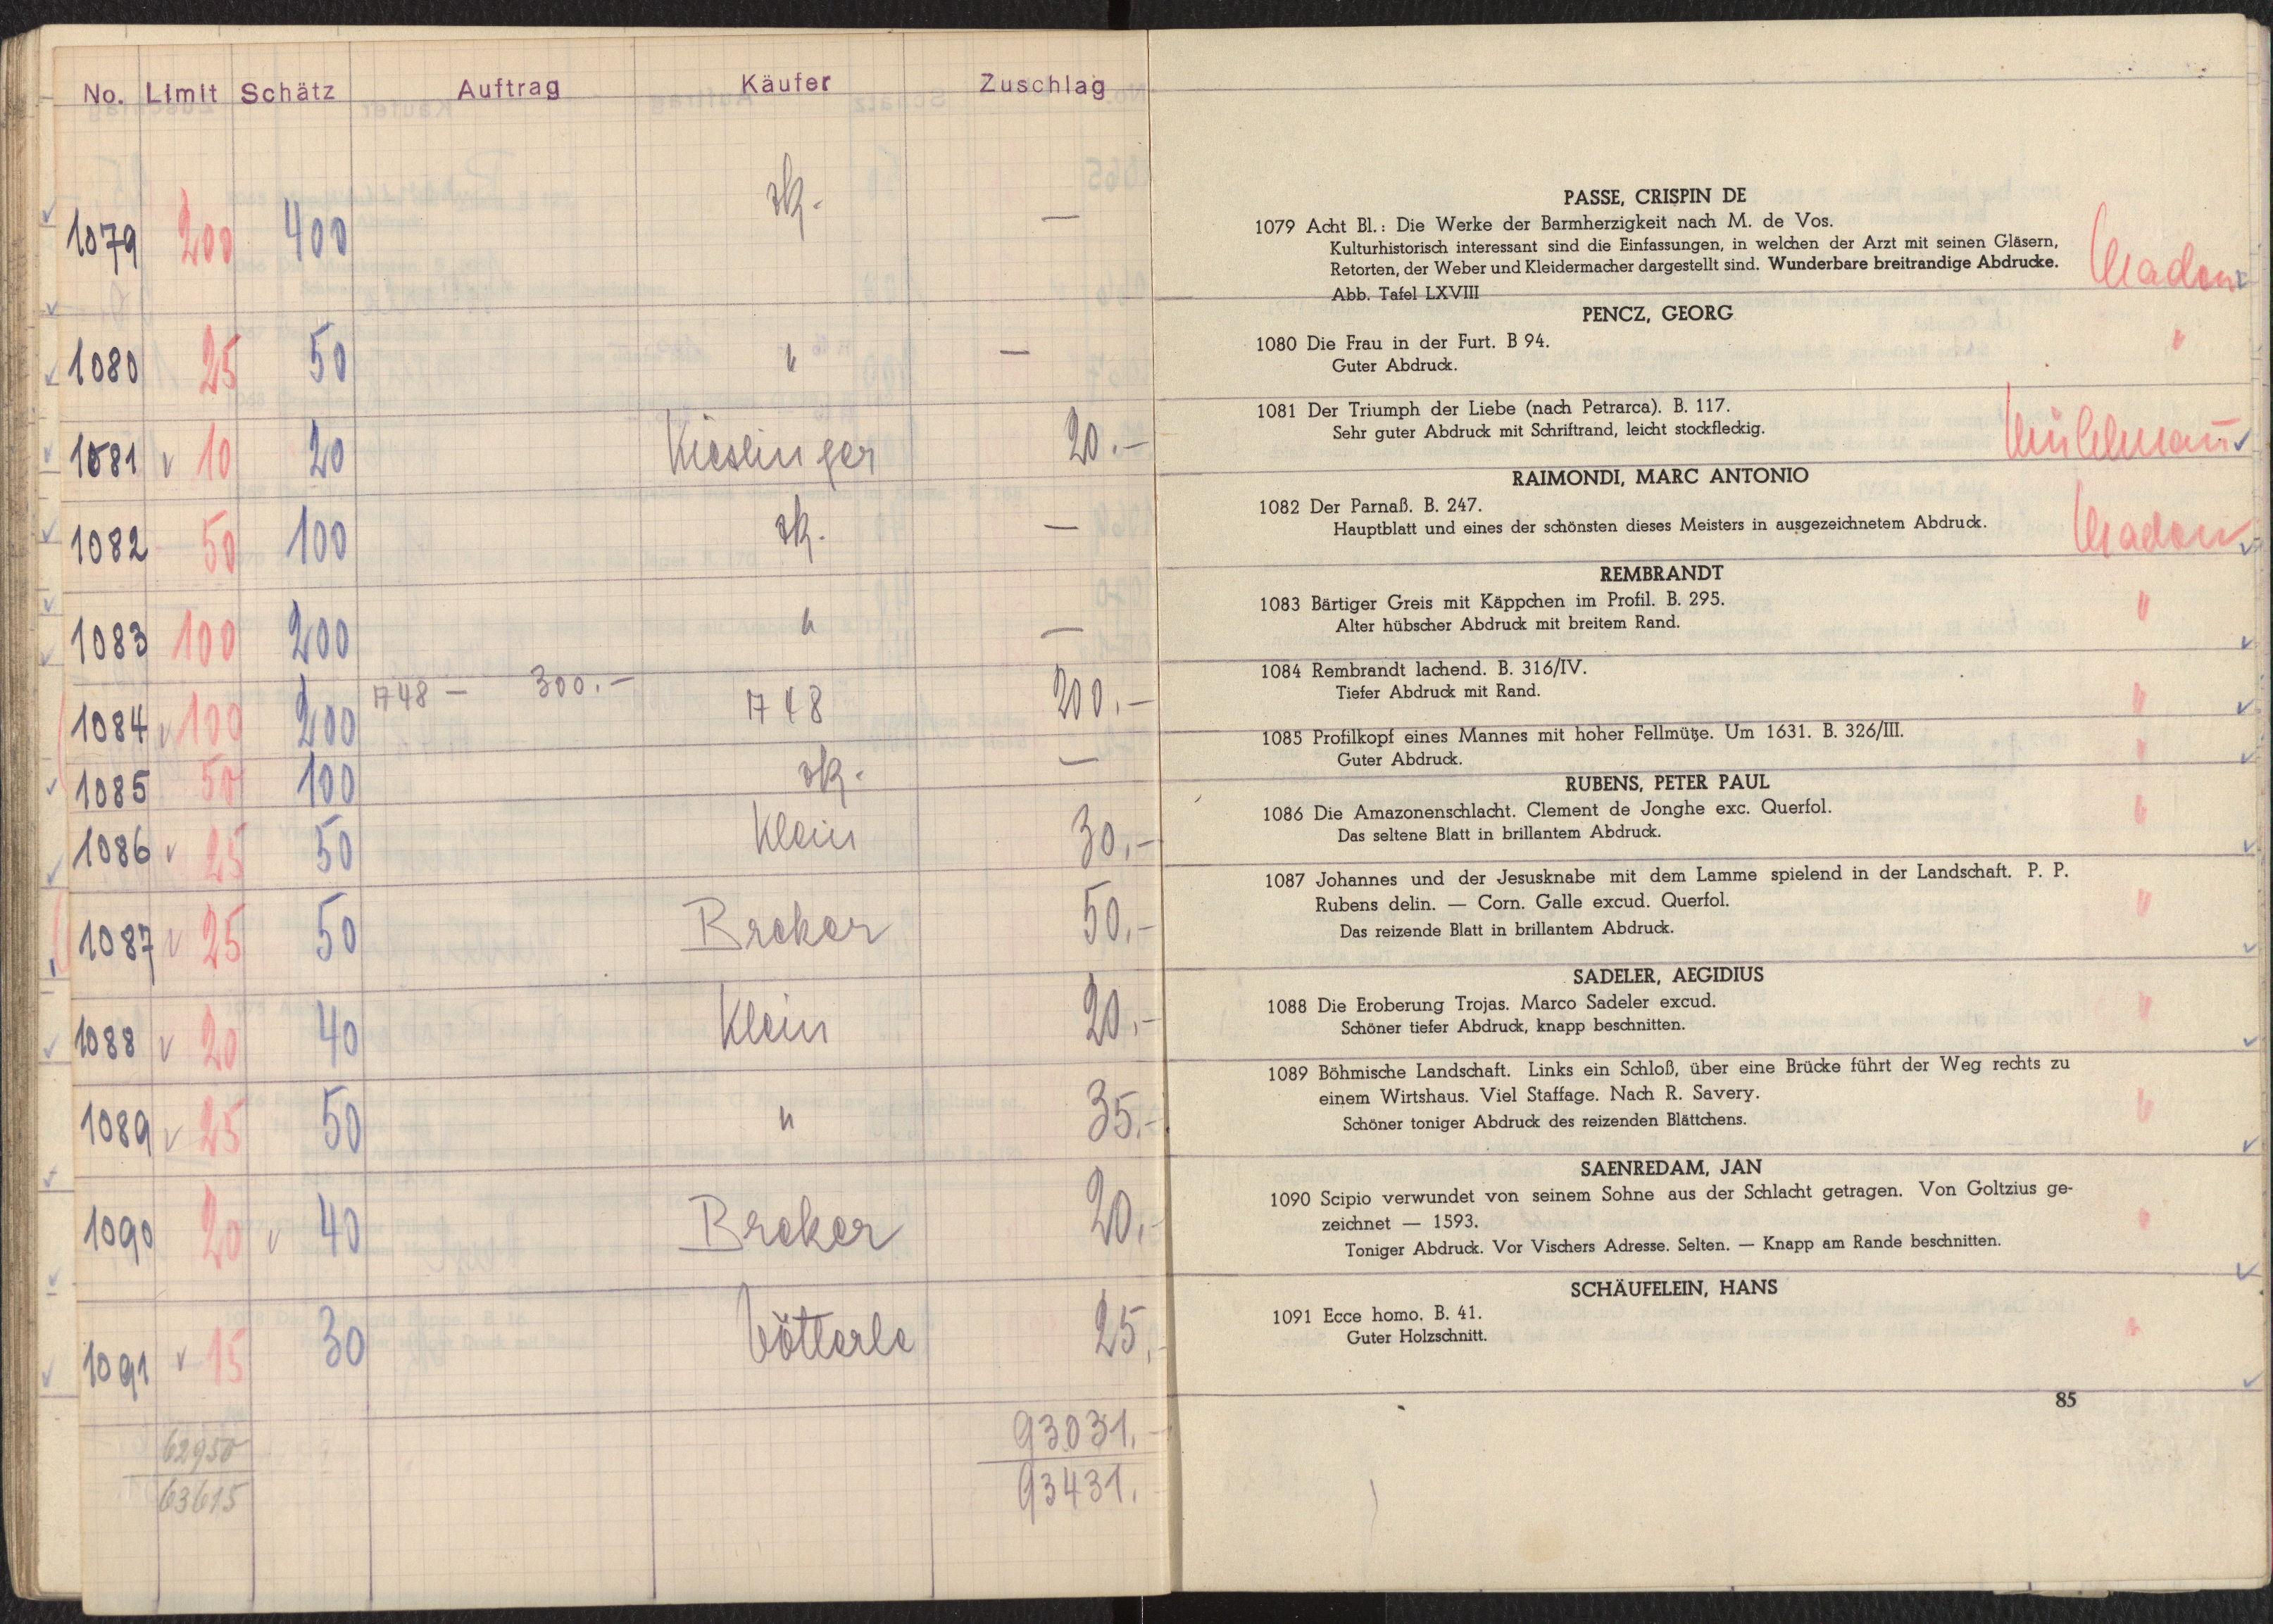 No. Limit Schätz Auftrag Käufer Zuschlag
1079 200 400 zk. —
1080 25 50 " —
1081 v 10 20 Kieslinger 20.-
1082 50 100 zk. —
1083 100 200 " —
1084 v 100 200 748 — 300.- 748 200.-
1085 50 100 zk. —
1086 v 25 50 Klein 30,-
1087 v 25 50 Breker 50,-
1088 v 20 40 Klein 20,-
1089 v 25 50 " 35,-
1090 20 v 40 Breker 20,-
1091 v 15 30 Vötterle 25,-
62950 93031.-
63615 93431.
PASSE, CRISPIN DE
1079 Acht Bl.: Die Werke der Barmherzigkeit nach M. de Vos.
Kulturhistorisch interessant sind die Einfassungen, in welchen der Arzt mit seinen Gläsern,
Retorten, der Weber und Kleidermacher dargestellt sind. Wunderbare breitrandige Abdrucke.
Abb. Tafel LXVIII
PENCZ, GEORG
1080 Die Frau in der Furt. B 94. "
Guter Abdruck.
1081 Der Triumph der Liebe (nach Petrarca). B. 117.
Sehr guter Abdruck mit Schriftrand, leicht stockfleckig.
RAIMONDI, MARC ANTONIO
1082 Der Parnaß. B. 247.
Hauptblatt und eines der schönsten dieses Meisters in ausgezeichnetem Abdruck.
REMBRANDT
1083 Bärtiger Greis mit Käppchen im Profil. B. 295. "
Alter hübscher Abdruck mit breitem Rand.
1084 Rembrandt lachend. B. 316/IV.
Tiefer Abdruck mit Rand. "
1085 Profilkopf eines Mannes mit hoher Fellmütze. Um 1631. B. 326/III. "
Guter Abdruck.
RUBENS, PETER PAUL
1086 Die Amazonenschlacht. Clement de Jonghe exc. Querfol. "
Das seltene Blatt in brillantem Abdruck.
1087 Johannes und der Jesusknabe mit dem Lamme spielend in der Landschaft. P. P.
Rubens delin. — Corn. Galle excud. Querfol. "
Das reizende Blatt in brillantem Abdruck.
SADELER, AEGIDIUS
1088 Die Eroberung Trojas. Marco Sadeler excud. "
Schöner tiefer Abdruck, knapp beschnitten.
1089 Böhmische Landschaft. Links ein Schloß, über eine Brücke führt der Weg rechts zu
einem Wirtshaus. Viel Staffage. Nach R. Savery. "
Schöner toniger Abdruck des reizenden Blättchens.
SAENREDAM, JAN
1090 Scipio verwundet von seinem Sohne aus der Schlacht getragen. Von Goltzius ge-
zeichnet — 1593. "
Toniger Abdruck. Vor Vischers Adresse. Selten. — Knapp am Rande beschnitten.
SCHÄUFELEIN, HANS
1091 Ecce homo. B. 41.
Guter Holzschnitt. "
85